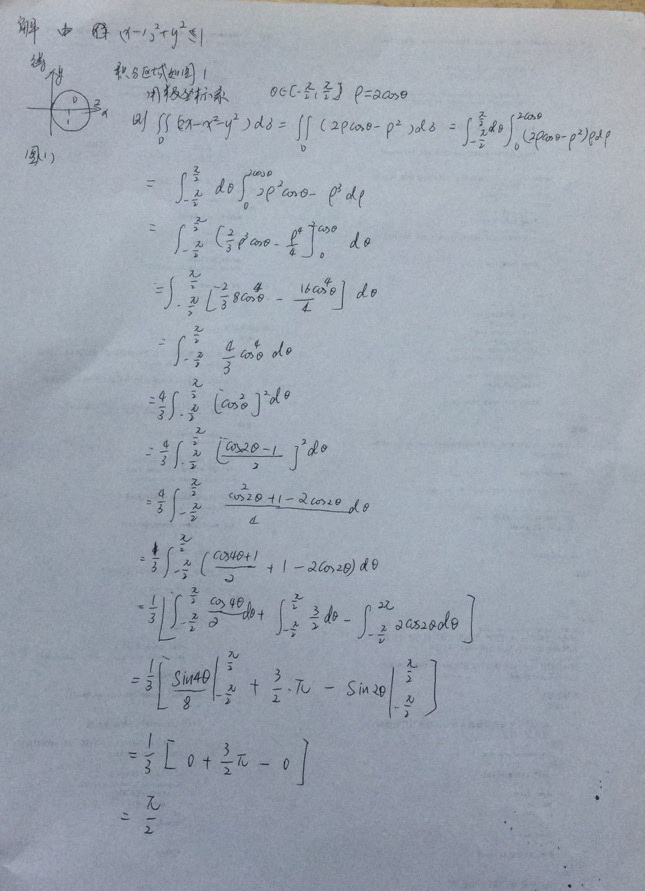 解 由 (x-1)²+y²≤1
积分区域如图1
用极坐标系 θ∈[-π/2, π/2] ρ=2cosθ
y 0 1 2 x
图(1)
则 ∬_D (2x-x²-y²)dδ = ∬_D (2ρcosθ-ρ²)dδ = ∫_{-π/2}^{π/2} dθ ∫_0^{2cosθ} (2ρcosθ-ρ²)ρdρ
= ∫_{-π/2}^{π/2} dθ ∫_0^{2cosθ} 2ρ²cosθ - ρ³ dρ
= ∫_{-π/2}^{π/2} [2/3 ρ³cosθ - ρ⁴/4]_0^{2cosθ} dθ
= ∫_{-π/2}^{π/2} [2/3 8cos⁴θ - 16cos⁴θ/4] dθ
= ∫_{-π/2}^{π/2} 4/3 cos⁴θ dθ
= 4/3 ∫_{-π/2}^{π/2} [cos²θ]² dθ
= 4/3 ∫_{-π/2}^{π/2} [(cos2θ-1)/2]² dθ
= 4/3 ∫_{-π/2}^{π/2} (cos²2θ+1-2cos2θ)/4 dθ
= 1/3 ∫_{-π/2}^{π/2} ((cos4θ+1)/2 + 1 - 2cos2θ) dθ
= 1/3 [∫_{-π/2}^{π/2} cos4θ/2 dθ + ∫_{-π/2}^{π/2} 3/2 dθ - ∫_{-π/2}^{2π} 2cos2θdθ]
= 1/3 [sin4θ/8 |_{-π/2}^{π/2} + 3/2·π - Sin2θ |_{-π/2}^{π/2}]
= 1/3 [0 + 3/2 π - 0]
= π/2